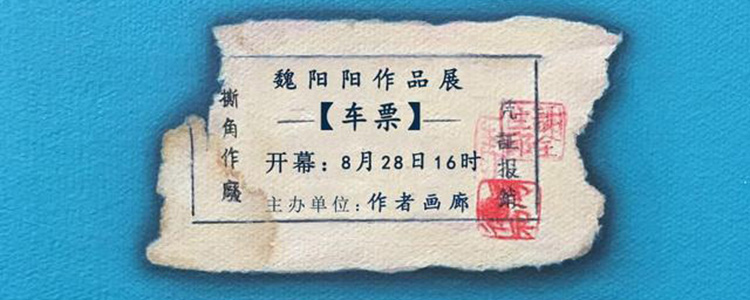 魏阳阳作品展
—【车票】—
开幕：8月28日16时
主办单位：作者画廊
撕角作廢
凭证报銷